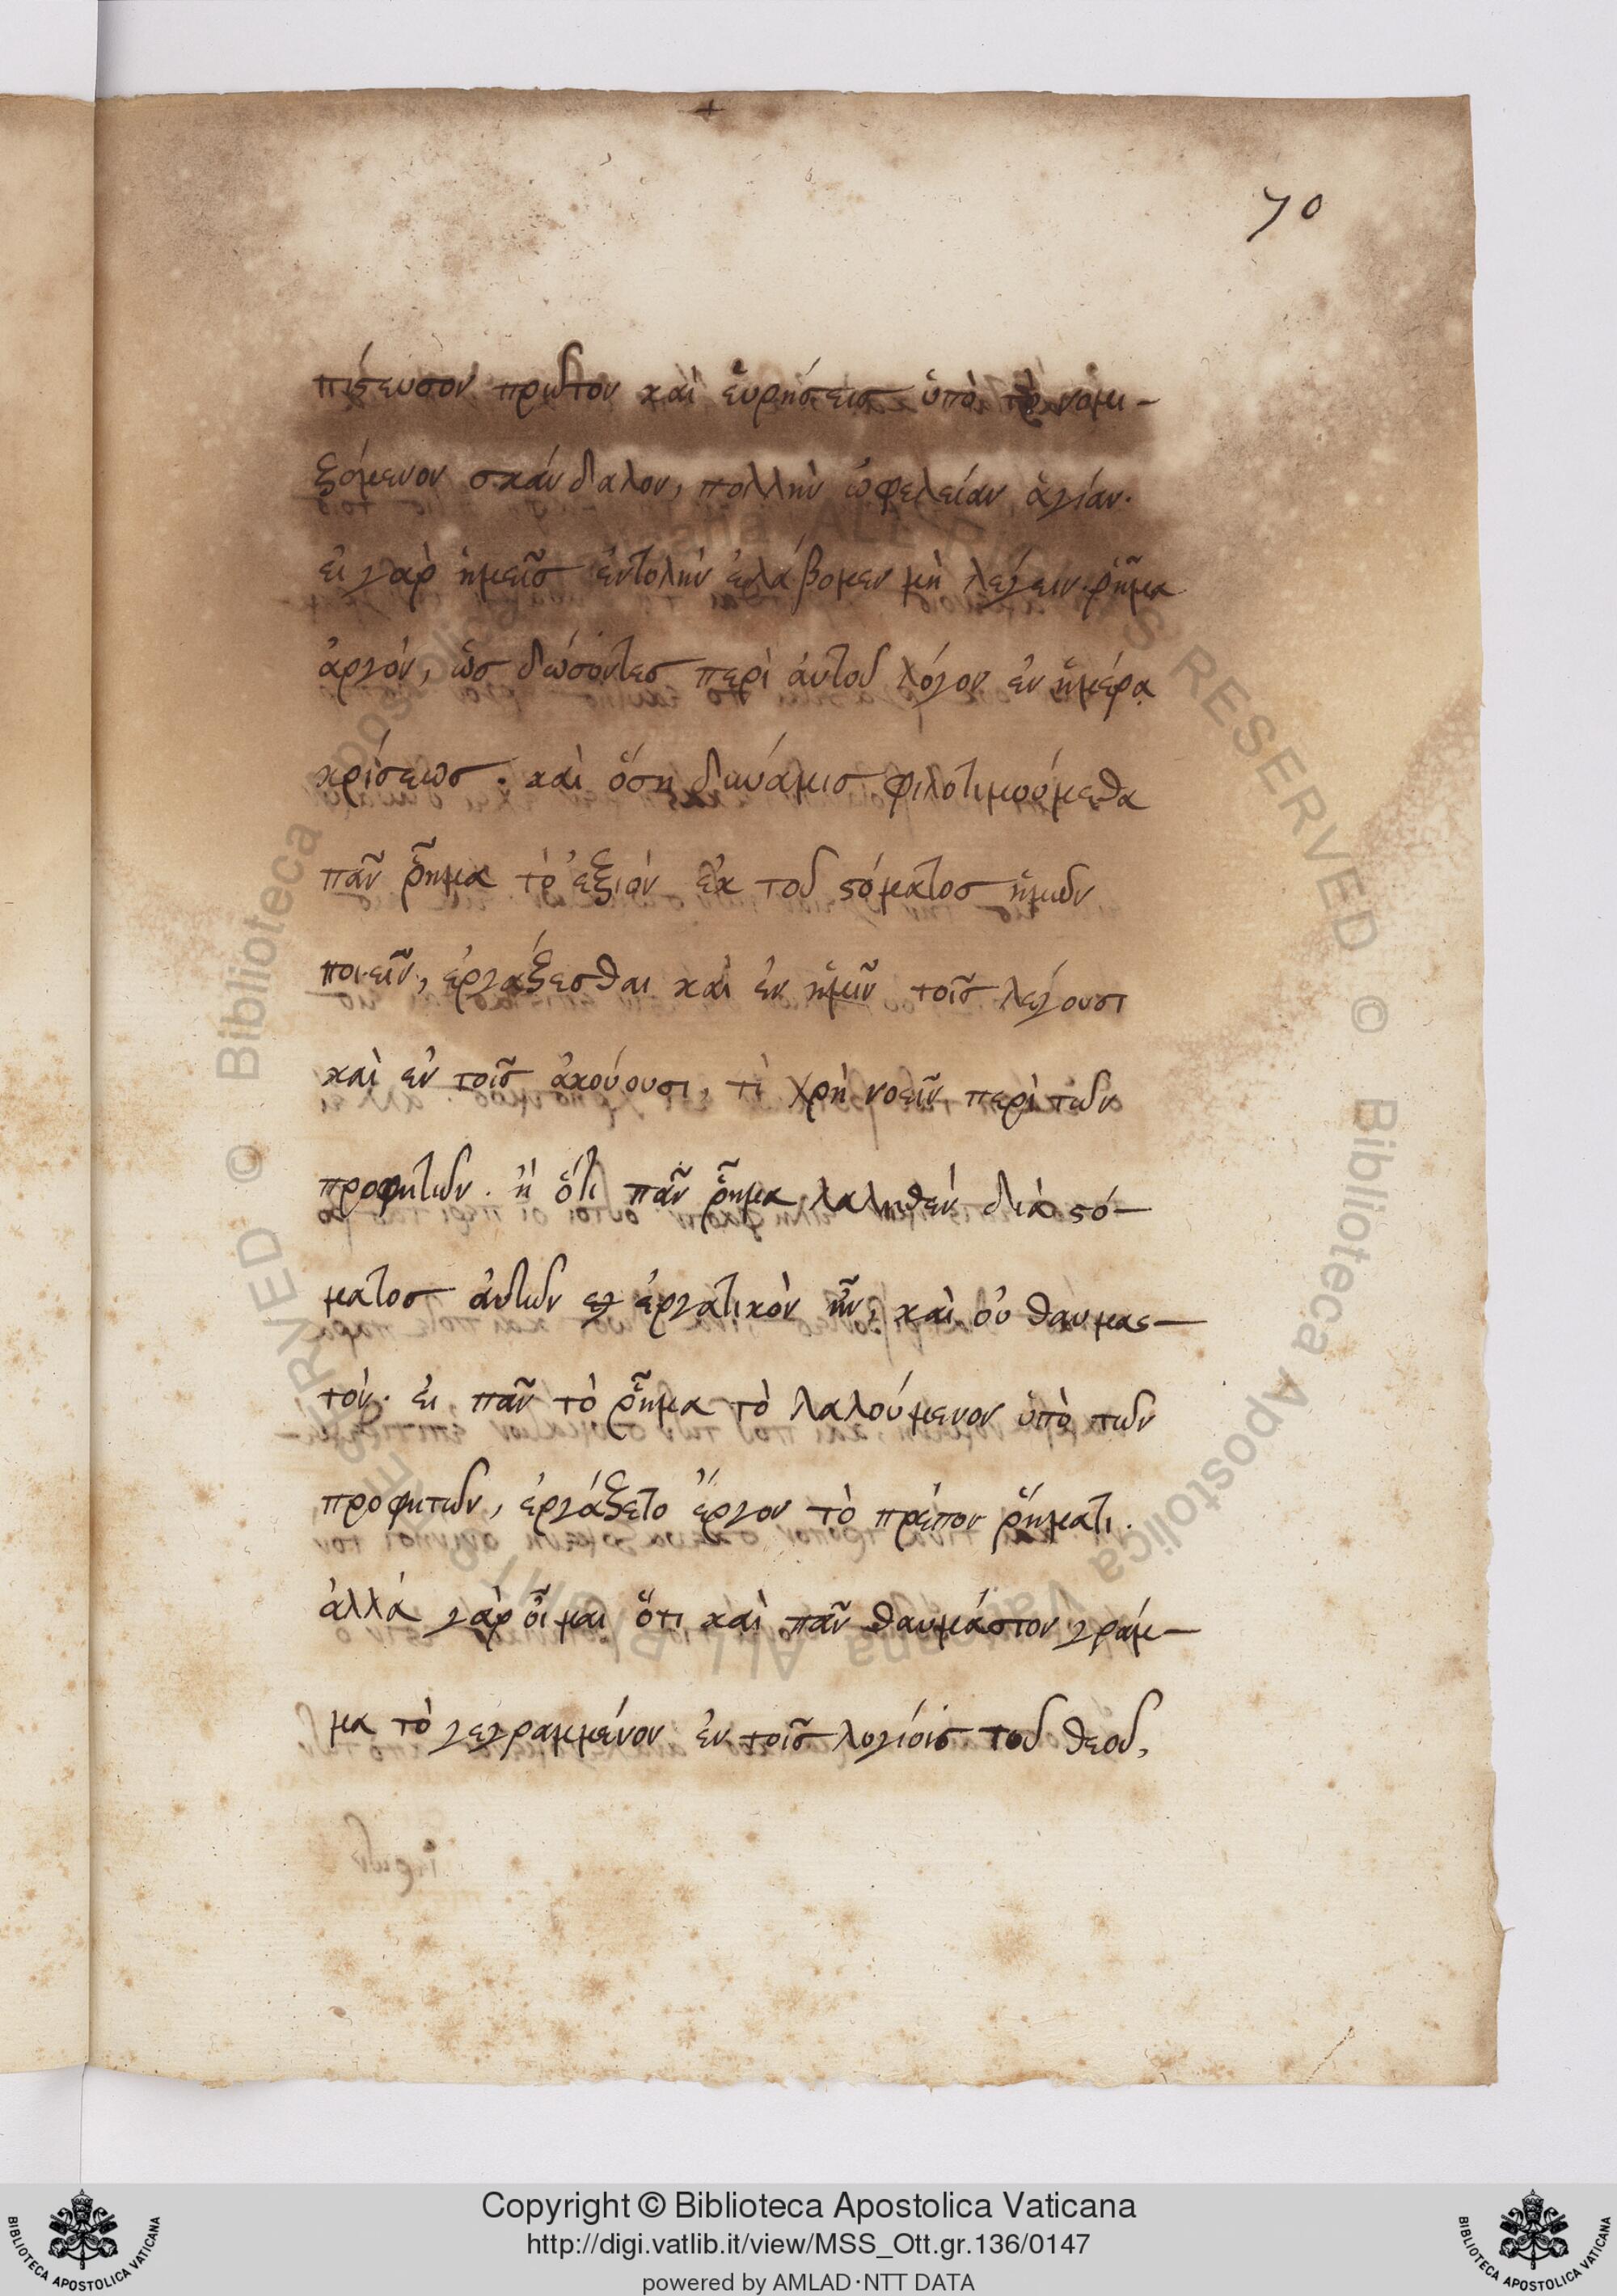 70
πίστευσον πρῶτον καὶ εὑρήσεις ὑπὸ τὸ νομι-
ζόμενον σκάνδαλον, πολλὴν ὠφελείαν ἁγίαν.
εἰ γὰρ ἡμεῖς ἐντολὴν ἐλάβομεν μὴ λέγειν ῥῆμα
ἀργόν, ὡς δώσοντες περὶ αὐτοῦ λόγον ἐν ἡμέρᾳ
κρίσεως. καὶ ὅση δυνάμις φιλοτιμούμεθα
πᾶν ῥῆμα τὸ ἐξιὸν ἐκ τοῦ στόματος ἡμῶν
ποιεῖν, ἐργάζεσθαι καὶ ἐν ἡμῖν τοῖς λέγουσι
καὶ ἐν τοῖς ἀκούουσι, τὶ χρὴ νοεῖν περὶ τῶν
προφητῶν. ἢ ὅτι πᾶν ῥῆμα λαληθὲν διὰ στό-
ματος αὐτῶν ἐργατικὸν ἦν, καὶ οὐ θαυμασ-
τόν. εἰ πᾶν τὸ ῥῆμα τὸ λαλούμενον ὑπὸ τῶν
προφητῶν, ἐργάζετο ἔργον τὸ πρέπον ῥήματι.
ἀλλὰ γὰρ οἶμαι ὅτι καὶ πᾶν θαυμάστον γράμ-
μα τὸ γεγραμμένον ἐν τοῖς λογίοις τοῦ θεοῦ,
Copyright © Biblioteca Apostolica Vaticana
http://digi.vatlib.it/view/MSS_Ott.gr.136/0147
powered by AMLAD·NTT DATA
BIBLIOTECA APOSTOLICA VATICANA
BIBLIOTECA APOSTOLICA VATICANA